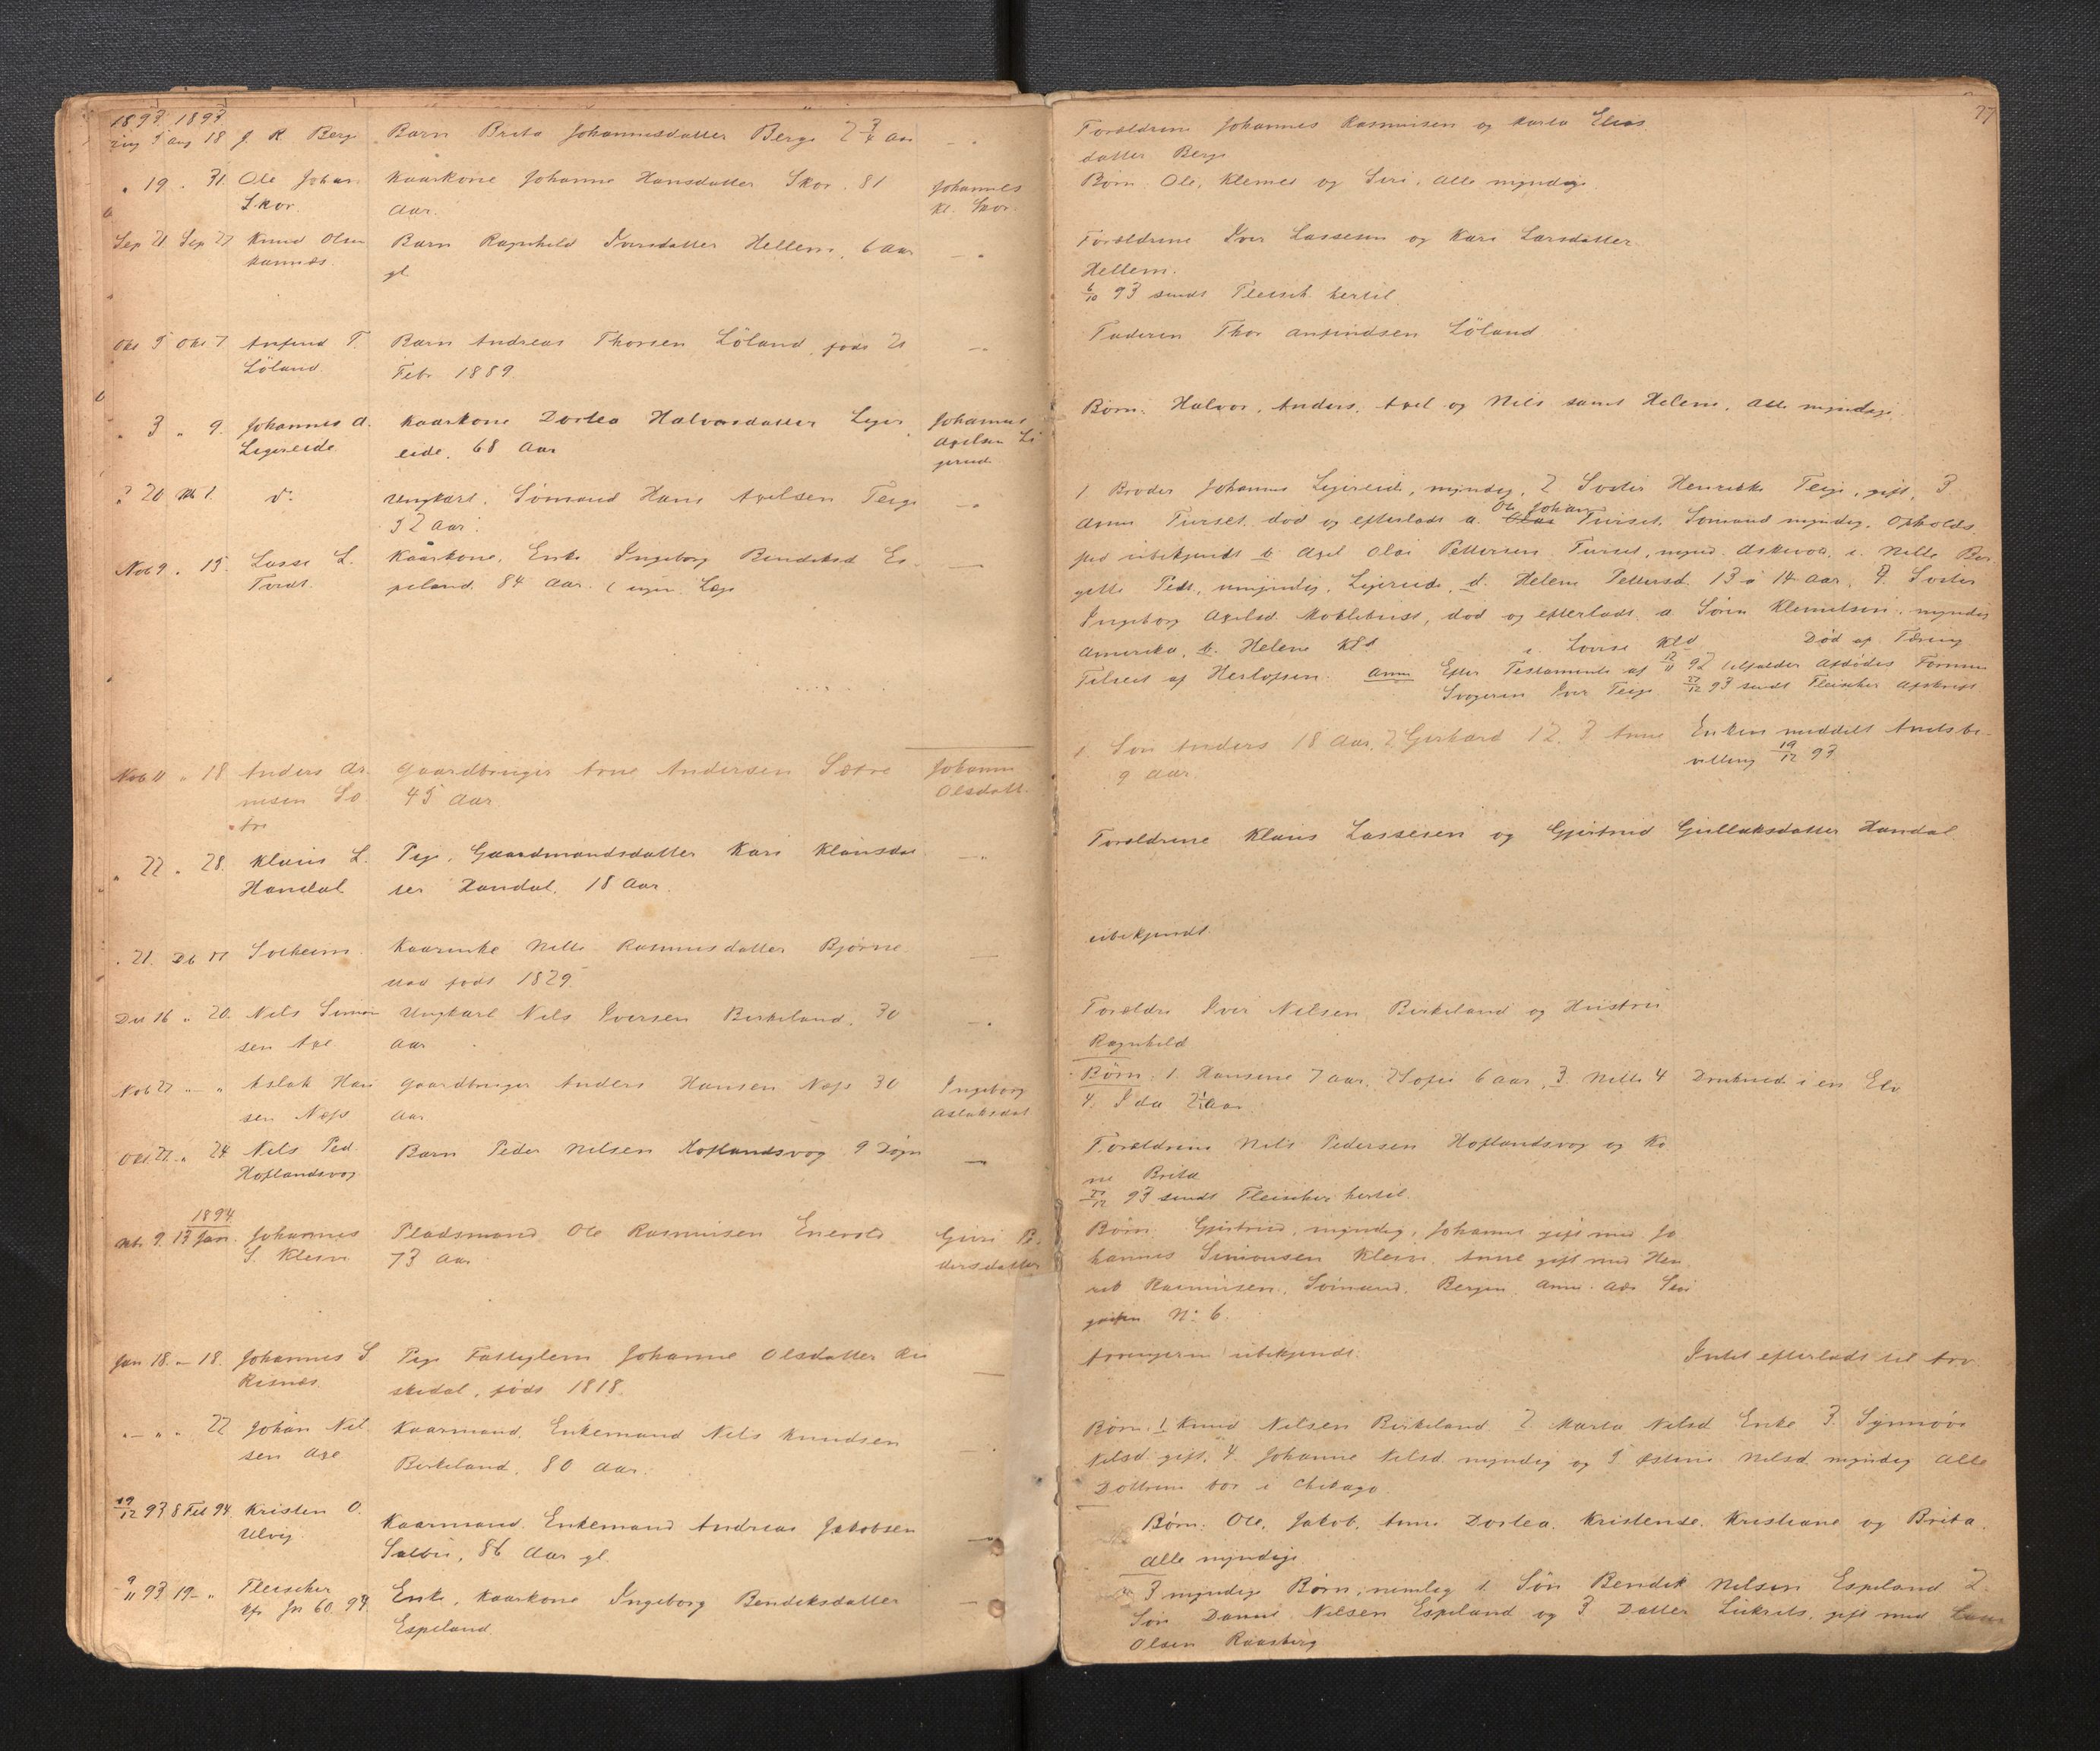 1893 1893
Aug 5 Aug 18 J. R. Berge Barn Brita Johannesdatter Berge 2 3/4 Aar — "
" 19 " 31. Ole Johan. Kaarkone Johanne Hansdatter Skor. 81 Johannes
Skor. Aar. Kl. Skor.
Sep 21 Sep 27 Knud Olsen Barn Ragnhild Iversdatter Hellem, 6 Aar — "
Kannes. gl.
Okt 5 Okt 7 Anfind T. Barn Andreas Thorsen Löland, föds 21 — "
Löland. Febr 1889.
" 3 " 9. Johannes A. Kaarkone Dortea Halvorsdatter Liger Johannes
Ligereide eide. 68 Aar Axelsen Li
gereid.
" 20 1. do Ungkarl. Sömand Hans Axelsen Teige — "
32 Aar.
Nob 9 " 15. Lasse L. Kaarkone, Enke Ingeborg Bendiksd Es- —
Tvedt. peland. 84 Aar. ( ingen Læge
Nob 11 " 18 Anders Ar. Gaardbruger Arne Andersen Sætre Johanne
nesen Sæ 45 Aar Olsdatt.
tre
" 22 " 28. Klaus L. Pige, Gaardmandsdatter Kari Klausdat — "
Handal ter Handal. 18 Aar.
" 21. Db 11 Solheim. Kaarenke Nille Rasmusdatter Bjørne —
stad föds 1829.
Des 16 " 20. Nils Simon Ungkarl Nils Iversen Birkeland. 30 — "
sen Axe Aar
Nob 27 " " Aslak Han Gaardbruger Anders Hansen Næss 30 Ingeborg
sen Næss Aar Aslaksdat
Okt 27 " 24 Nils Ped. Barn Peder Nilsen Hoflandsvog 9 Døgn —
Hoflandsvog
1894
Okt. 9. 13 Jan. Johannes Pladsmand Ole Rasmusen Enevold Guri P.
S. Kleiv 73 Aar dersdatter
Jan 18. — 18. Johannes S Pige Fattiglem Johanne Olsdatter Ri —
Risnes. skedal, föds 1818.
" — " " 22 Johan Nil Kaarmand. Enkemand Nils Knudsen — "
sen Axe Birkeland, 80 Aar.
19/12 93 8 Feb 94. Kristen O. Kaarmand. Enkemand Andreas Jakobsen —
Ulvig. Salbu, 86 Aar gl.
9/11 93 19 — " Fleischer Enke, Kaarkone Ingeborg Bendiksdatter —
kfr Jn 60. 94. Espeland.
27
Foraldrene Johannes Rasmusen og Marta Elias
datter Berge
Børn. Ole, Klemet og Siri, alle myndige.
Foraldrene Iver Lassesen og Kari Larsdatter
Hellem.
6/10 93 sendt Fleisch. hertil.
Faderen Thor Anfindsen Löland
Børn. Halvor, Anders, Axel og Nils samt Helene, alle myndige.
1 Broder Johannes Ligereide, myndig, 2 Søster Henrikke Teige, gift, 3
Anne Turset, död og efterladt a. Ole Johan Turset, Sømand myndig, Opholds
sted ubekjendt b Axel Olai Pettersen Turset, mynd. Askevold c. Nille Bir
gitte Peds, umyndig, Ligereide, d. Helene Pettersd. 13 a 14 Aar, 4. Søster
Ingeborg Axelsd. Moklebust, död og efterladt a Søren Klemetsen, myndig
Amerika, b. Helene Kld c. Lovise Kld Død af Tæring
Tilseet af Herlofsen. Anm Efter Testamente af 12/11 92 tilfalder Afdødes Formue
Svogeren Iver Teige. 27/12 93 sendt Fleischer Afskrift.
1. Søn Anders 18 Aar, 2. Gerhard 12, 3. Anne Enken meddelt Amtsbe-
9 Aar. villing 19/12 93
Foraldrene Klaus Lassesen og Gjertrud Gullaksdatter Handal
ubekjendt.
Foraldre Iver Nilsen Birkeland og Hustru
Ragnhild
Børn. 1. Hansine 7 Aar, 2 Sofie 6 Aar, 3. Nille 4 Druknede i en Elv
4. Ida 2 1/2 Aar.
Foraldrene Nils Pedersen Hoflandsvog og Ko
ne Brita
27/12 93 sendt Fleischer hertil.
Børn. Gjertrud, myndig, Johanne gift med Jo
hannes Simonsen Kleiv, Anne gift med Hen
rik Rasmusen, Sömand, Bergen Anm. Adr Ski
N: 6.
Arvingerne ubekjendt. Intet efterladt til Arv
Børn. 1 Knud Nilsen Birkeland 2 Marta Nilsd Enke 3. Synnøve
Nilsd gift, 4. Johanne Nilsd myndig og 5 Østine Nilsd myndig alle
Døttrene bor i Chikago.
Børn. Ole, Jakob, Anne Dortea, Kristense, Kristiane og Brita.
alle myndige.
3 myndige Børn, nemlig 1. Søn Bendik Nilsen Espeland 2.
Søn Daniel Nilsen Espeland og 3 Datter Lukrets, gift med Lars
Olsen Raasberg